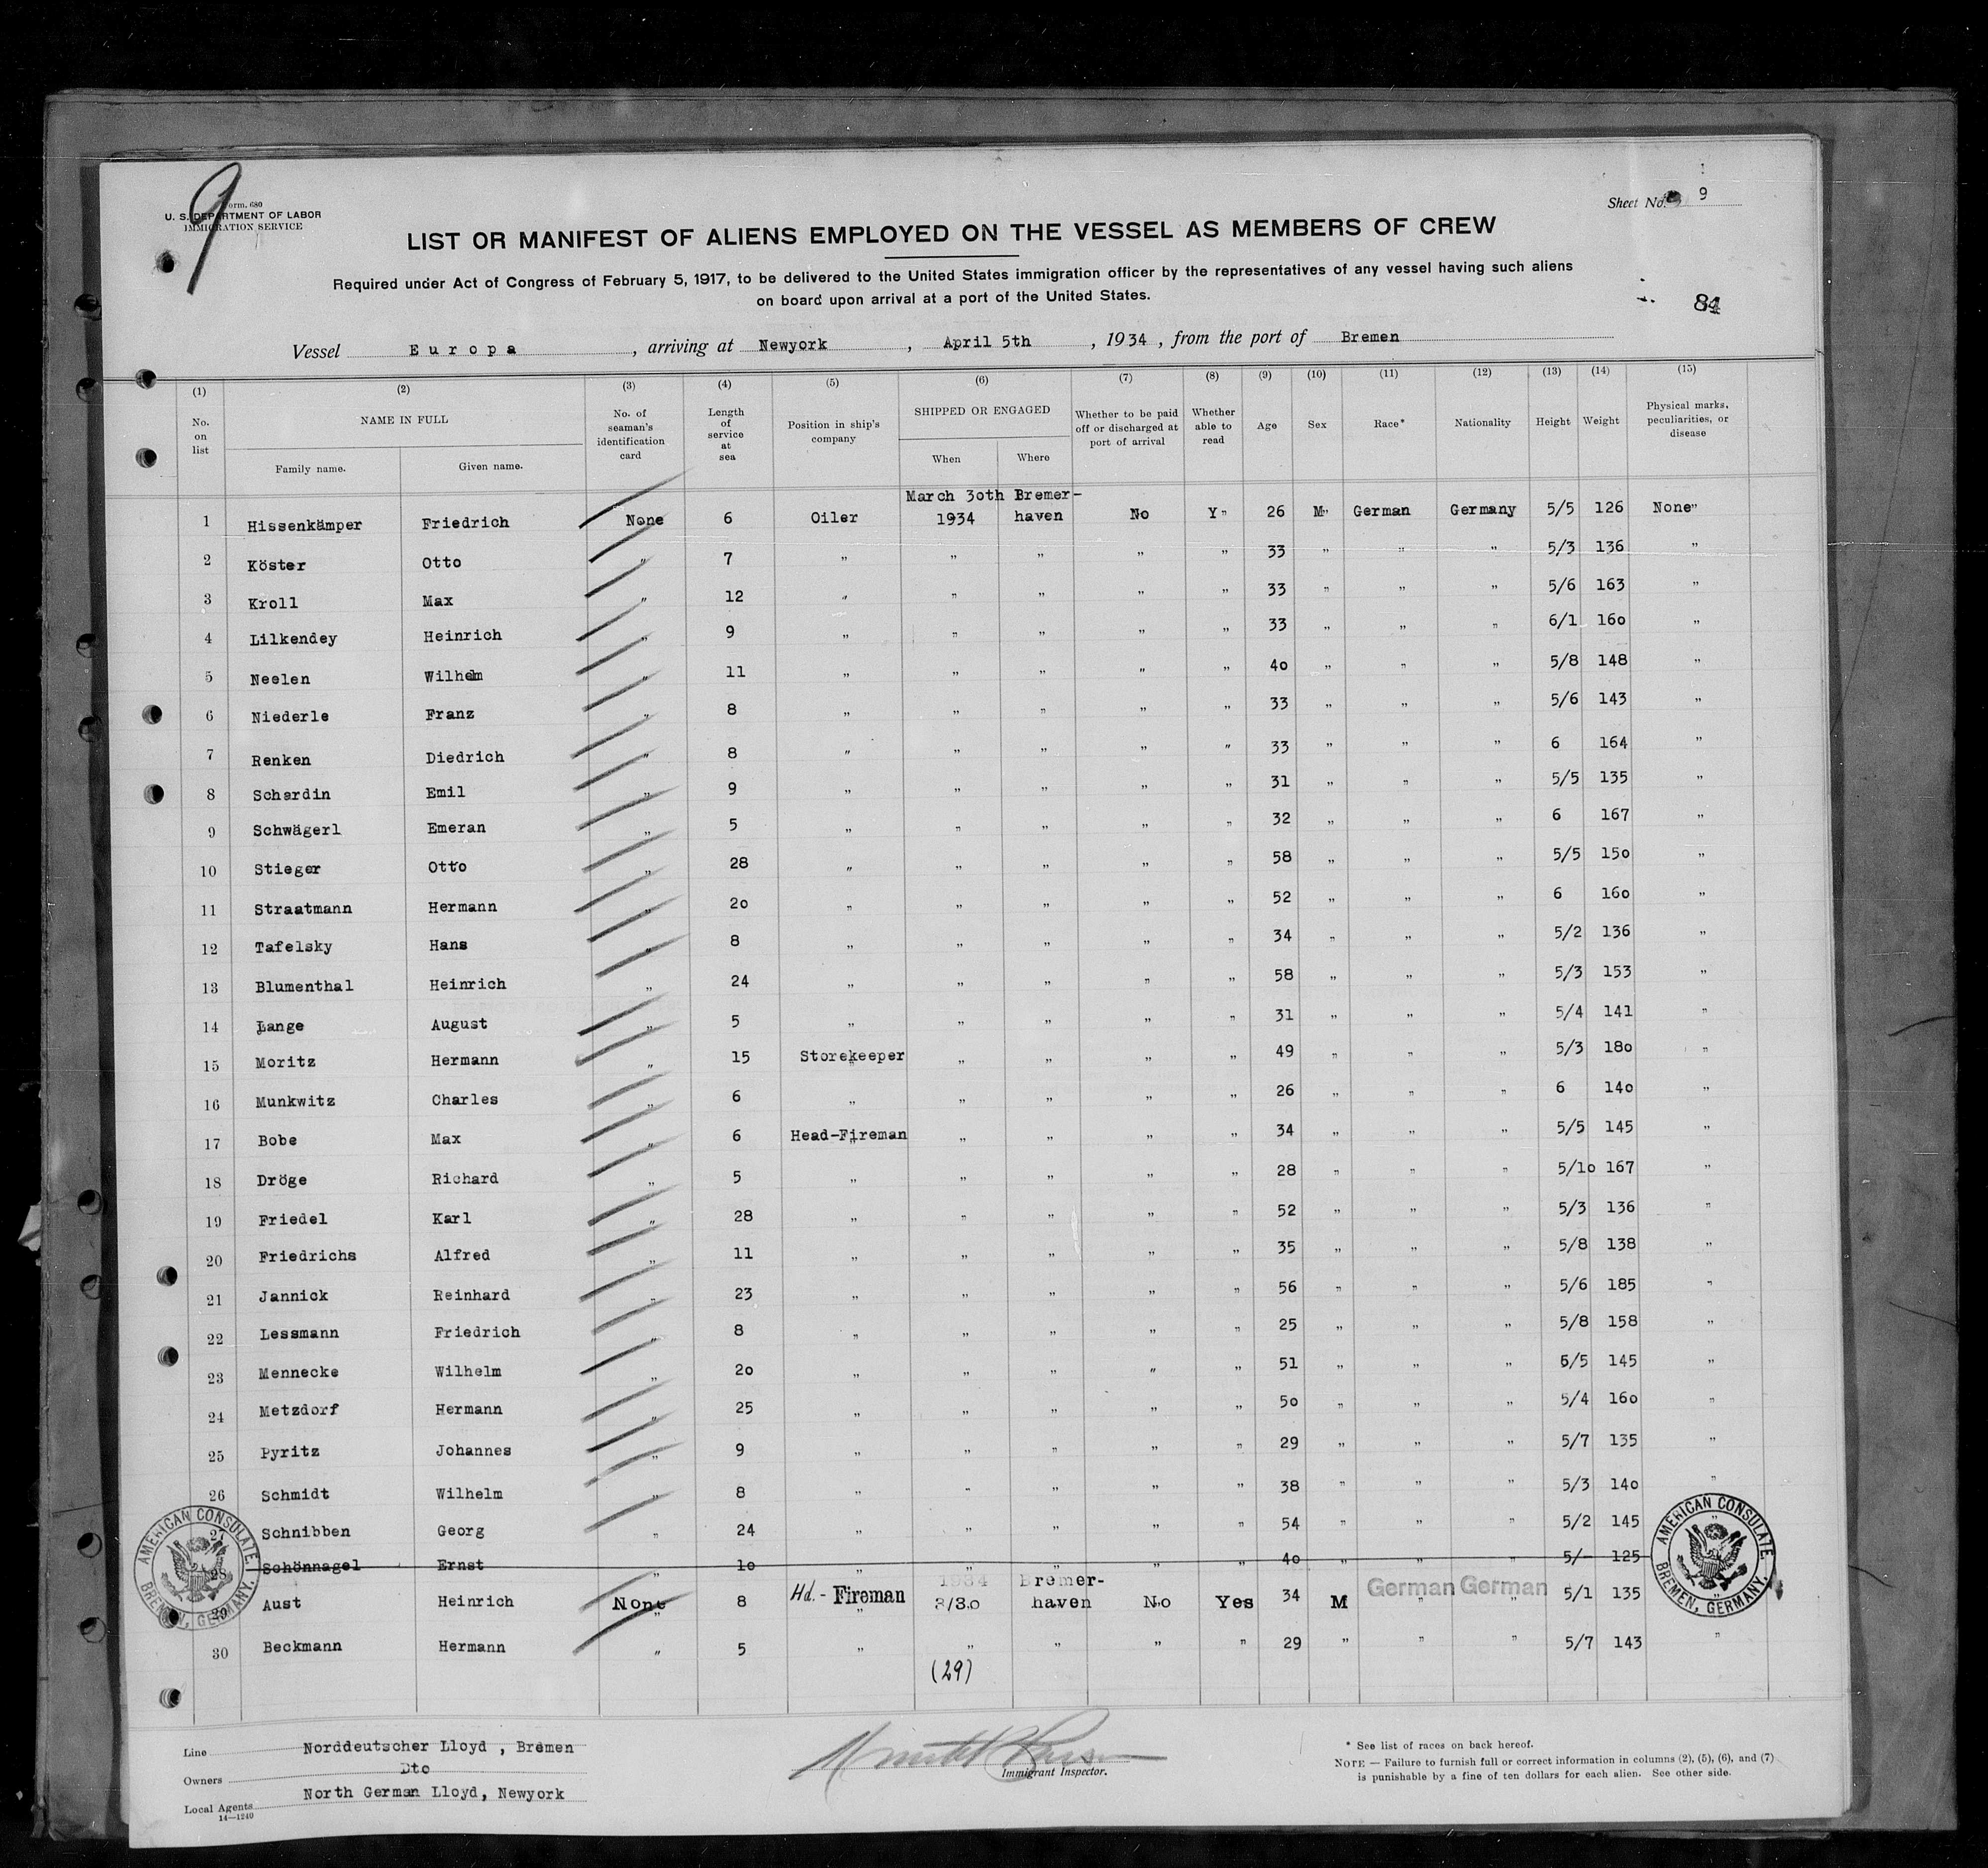 9
Form. 680
U. S. DEPARTMENT OF LABOR
IMMIGRATION SERVICE
Sheet No. 9
LIST OR MANIFEST OF ALIENS EMPLOYED ON THE VESSEL AS MEMBERS OF CREW
Required under Act of Congress of February 5, 1917, to be delivered to the United States immigration officer by the representatives of any vessel having such aliens
on board upon arrival at a port of the United States.
84
Vessel Europa , arriving at Newyork , April 5th , 1934 , from the port of Bremen
(1) (2) (3) (4) (5) (6) (7) (8) (9) (10) (11) (12) (13) (14) (15)
No. on list NAME IN FULL No. of seaman's identification card Length of service at sea Position in ship's company SHIPPED OR ENGAGED Whether to be paid off or discharged at port of arrival Whether able to read Age Sex Race* Nationality Height Weight Physical marks, peculiarities, or disease
Family name. Given name. When Where
March 30th Bremer-
1 Hissenkämper Friedrich None 6 Oiler 1934 haven No Y" 26 M" German Germany 5/5 126 None"
2 Köster Otto " 7 " " " " " 33 " " " 5/3 136 "
3 Kroll Max " 12 " " " " " 33 " " " 5/6 163 "
4 Lilkendey Heinrich " 9 " " " " " 33 " " " 6/1 160 "
5 Neelen Wilhelm " 11 " " " " " 40 " " " 5/8 148 "
6 Niederle Franz " 8 " " " " " 33 " " " 5/6 143 "
7 Renken Diedrich " 8 " " " " " 33 " " " 6 164 "
8 Schardin Emil " 9 " " " " " 31 " " " 5/5 135 "
9 Schwägerl Emeran " 5 " " " " " 32 " " " 6 167 "
10 Stieger Otto " 28 " " " " " 58 " " " 5/5 150 "
11 Straatmann Hermann " 20 " " " " " 52 " " " 6 160 "
12 Tafelsky Hans " 8 " " " " " 34 " " " 5/2 136 "
13 Blumenthal Heinrich " 24 " " " " " 58 " " " 5/3 153 "
14 Lange August " 5 " " " " " 31 " " " 5/4 141 "
15 Moritz Hermann " 15 Storekeeper " " " " 49 " " " 5/3 180 "
16 Munkwitz Charles " 6 " " " " " 26 " " " 6 140 "
17 Bobe Max " 6 Head-Fireman " " " " 34 " " " 5/5 145 "
18 Dröge Richard " 5 " " " " " 28 " " " 5/10 167 "
19 Friedel Karl " 28 " " " " " 52 " " " 5/3 136 "
20 Friedrichs Alfred " 11 " " " " " 35 " " " 5/8 138 "
21 Jannick Reinhard " 23 " " " " " 56 " " " 5/6 185 "
22 Lessmann Friedrich " 8 " " " " " 25 " " " 5/8 158 "
23 Mennecke Wilhelm " 20 " " " " " 51 " " " 5/5 145 "
24 Metzdorf Hermann " 25 " " " " " 50 " " " 5/4 160 "
25 Pyritz Johannes " 9 " " " " " 29 " " " 5/7 135 "
26 Schmidt Wilhelm " 8 " " " " " 38 " " " 5/3 140 "
27 Schnibben Georg " 24 " " " " " 54 " " " 5/2 145 "
28 Schönnagel Ernst " 10 " " " " " 40 " " " 5/- 125
1934 Bremer-
29 Aust Heinrich None 8 Hd.- Fireman 3/30 haven No Yes 34 M German German 5/1 135 "
30 Beckmann Hermann " 5 " " " " " 29 " " " 5/7 143 "
(29)
AMERICAN CONSULATE, BREMEN, GERMANY.
AMERICAN CONSULATE, BREMEN, GERMANY.
Line Norddeutscher Lloyd , Bremen
Owners Dto
Local Agents North German Lloyd, Newyork
14—1240
Immigrant Inspector.
* See list of races on back hereof.
NOTE — Failure to furnish full or correct information in columns (2), (5), (6), and (7)
is punishable by a fine of ten dollars for each alien. See other side.